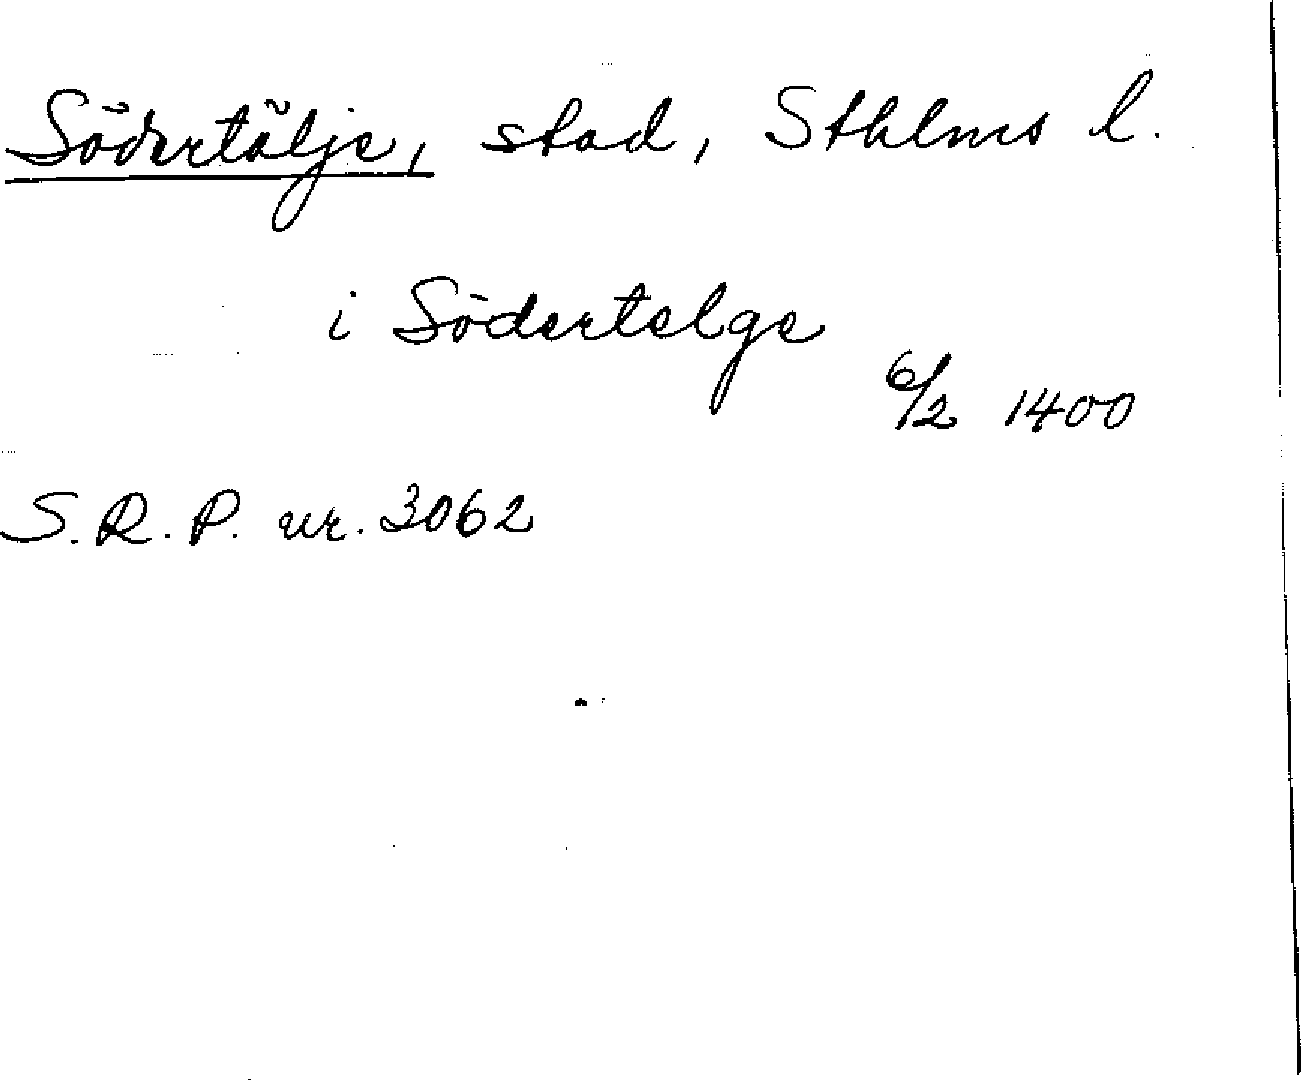 Södertälje, stad, Sthlms l.
i Södertelge
6/2 1400
S.R.P. nr. 3062